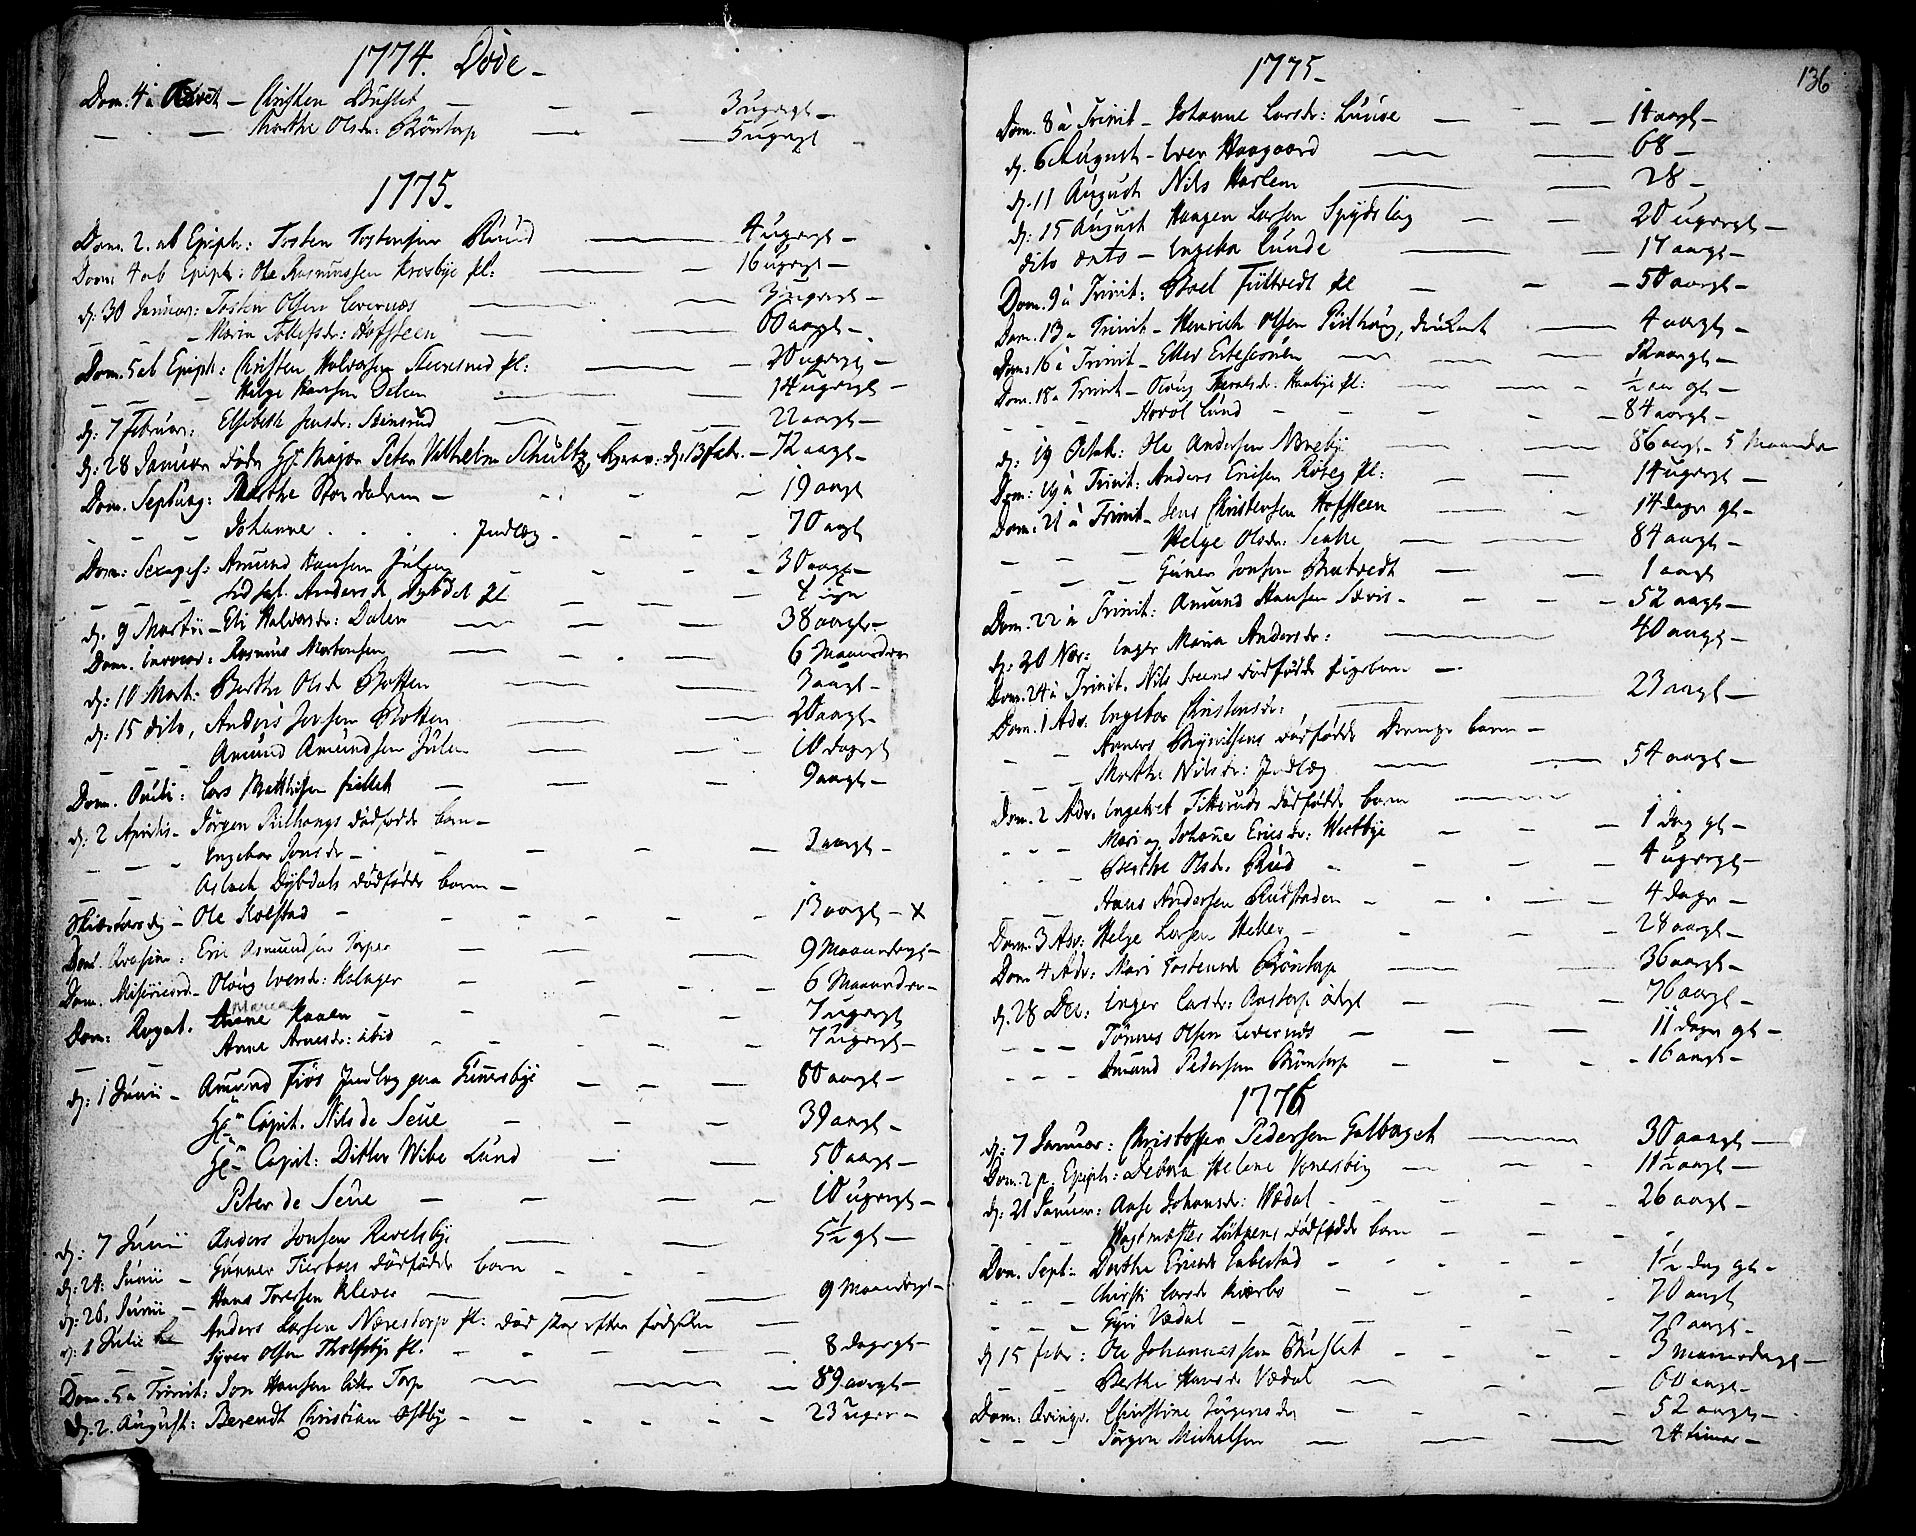 1774. Døde -
Dom: 4 à Advet - Christen Buslet - - - 3 ugrgl -
- - - Marthe Olsdr: Brøntorp - - 5 ugrgl
1775.
Dom. 2. ab Epiph: Tosten Tostensen Ruud - 4 ugrgl -
Dom: 4 ab Epiph: Ole Rasmussen Krosbye pl: - - 16 ugrgl -
d: 30 Januar: Tosten Olsen Levernæs - - 3 ugrgl -
- Karin Tollefsdr: Hofsteen - - 60 aargl -
Dom. 5 ab Epiph: Christen Halvorsen Steeresrud pl: - - 20 ugrgl -
- - - Helge Hansen Dalen - - 14 ugrgl -
d: 7 Februar: Elsebeth Jensdr: Steinsrud - - 22 aargl -
d: 28 Januar døde Hr Major Peter Vilhelm Schultz, begrav: d: 13 Febr. - 72 aargl -
Dom. Septuag: Marthe Stordalen - - - 19 aargl
- - - Johanne . . . . Indlæg - - - 70 aargl
Dom: Sexages: Amund Hansen Julsen - - - 30 aargl -
- - - Anders Dybdal pl - - -
d. 9 Martii - Eli Halvorsdr: Dalen - - - 38 aargl -
Dom. Invocav: Rasmus Mortensen - - - 6 Maaneder
d: 10 Mart: Berthe Olsdr Botten - - 3 aargl -
d: 15 dito, Anders Jensen Botten - - 20 aargl -
- - - Amund Amundsen Julsen - - 10 dagrgl
Dom. Oculi: Lars Matthisen - - - 9 aargl -
d: 2 Aprilis - Jørgen Pilthaugs dødfødde barn -
- - - Ingebor Jonsdr - - - 3 aargl -
- - - Aslach Dybdals dødfødde barn -
Skiertorsdag - Ole Kolstad - - - 13 aargl - x
Dom. Qvasim: Eric Asmundsen Torper - - 9 Maanedrgl -
Dom. Misericord - Oloug Iversdr: Kolager - - - 6 Maaneder -
Dom. Rogat. Anne Maria Haaen - - - 7 ugrgl
- Anne Arnesdr: ibid - - - 7 ugrgl -
d: 1 Junii - Amund Fiøs Indlæg paa Finnesbye - - - 80 aargl -
Hrn Capit. Nils de Seue - - - 39 aargl -
Hrn Capit: Ditlev Wibe Lund - - 50 aargl -
Peter de Seue - - - 10 ugrgl -
d: 7 Junii Anders Jonsen Revelsbye - - 5½ gl -
d: 24. Junii - Gunner Tierbols dødfødde barn - - -
d: 26. Junii - Hans Toresen Klever - - - 9 Maanedrgl -
d: 1 Julii Anders Larsen Nærestorp pl: død strax efter fødselen -
Syver Olsen Tholfsbye pl. - - - 8 dagrgl -
Dom. 5 a Trinit: Jon Hansen Torp - - - 89 aargl -
d: 2. August: Berendt Christian Ostbye - - - 23 uger -
136
1775 -
Dom. 8 à Trinit - Johanne Larsdr: Lunde - - - 14 aargl -
d. 6 August - Iver Haagaard - - 68 -
d. 11 August Nils Harlem - - 28 -
d: 15 August Haagen Larsen Spydslag - - 20 ugrgl -
dito - Ingebor Lunde - - 17 aargl -
Dom. 9 à Trinit: Boel pl - - - 50 aargl -
Dom. 13 a Trinit - Henrich Olsen Pilthaug, druknet - 4 aargl -
Dom: 16 à Trinit - Ellev Ertesrønen - - - 52 aargl -
Dom. 18 a Trinit - Oloug Toralsdr: Haabye pl: - - - ½ aar gl -
- - - Haval Lund - - - 84 aargl -
d: 19 Octob: Ole Andersen Næreby - - - 86 aargl 5 Maaneder
Dom: 19 à Trinit: Anders Ericsen Roteg pl: - - 14 ugrgl -
Dom: 21 à Trinit - Jens Christensen Hofsteen - - 14 dagr gl -
- - - Helge Olsdr: Leake - - 84 aargl -
- - - Gunner Jonsen Bratvedt - - 1 aargl
Dom. 22 à Trinit: Amund Hansen - - - 52 aargl -
d: 20 Nov: Inger Maria Andersdr: - - 40 aargl -
Dom. 24 à Trinit. Nils Sveens dødfødde pigebarn -
Dom. 1 Adv. Ingebor Christensdr: - - 23 aargl -
- - Anners Brynilsens dødfødde Drenge barn -
- - - Marthe Nilsdr: Indlæg - - 54 aargl -
Dom. 2 Adv. Ingebret Titterudz dødfødde barn -
- - - Mari og Johanne Ericsdr: Westbye - - - 1 dag gl -
- - - Berthe Olsdr Ruud - - - 4 ugrgl -
- - Hans Andersen Rudstaden - - - 4 dagr -
Dom. 3 Adv: Helge Larsen Heker - - - 28 aargl -
Dom. 4 Adv: Mari Tostensdr Brøntorp - - 36 aargl -
d: 28 Dec: Inger Larsdr: Aastorp - - 76 aargl -
- - - Tønnes Olsen Levernæs - - - 11 dagr gl -
- - - Amund Pedersen Brøntorp - - - 16 aargl -
1776
d: 7 Januar: Christopher Pedersen Galbaget - 30 aargl -
Dom. 2 p. Epiph: Debora Helene Vonersbiig - - - 11½ aargl -
d: 21 Januar: Aase Johansdr: Wædal - - - 26 aargl -
- - - Vagtmester Lützens dødfødde barn - - -
Dom. Sept: Dorthe Ericsdr Enbestad - - - 1½ dag gl -
- - - Christi Larsdr Kiærbo - - - 70 aargl
- - - Gyri Vædal - - - 78 aargl -
d 15 Febr: Ole Johannessen Buslet - - - 3 maanedrgl -
- - Berthe Hansdr Vædal - - - 60 aargl -
Dom: Qvinqv. Christine Jørgensdr - - - 52 aargl -
- - - Jørgen Michelsen - - - 24 timer -